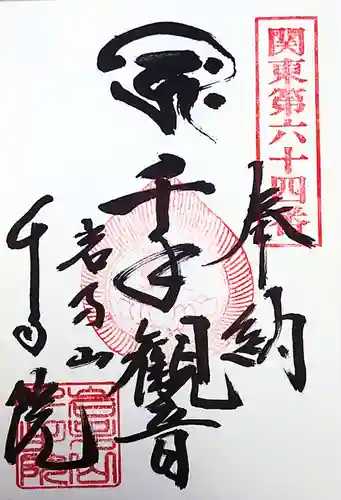 関東第六十四番
奉納
千手観音
岩子山
千手院